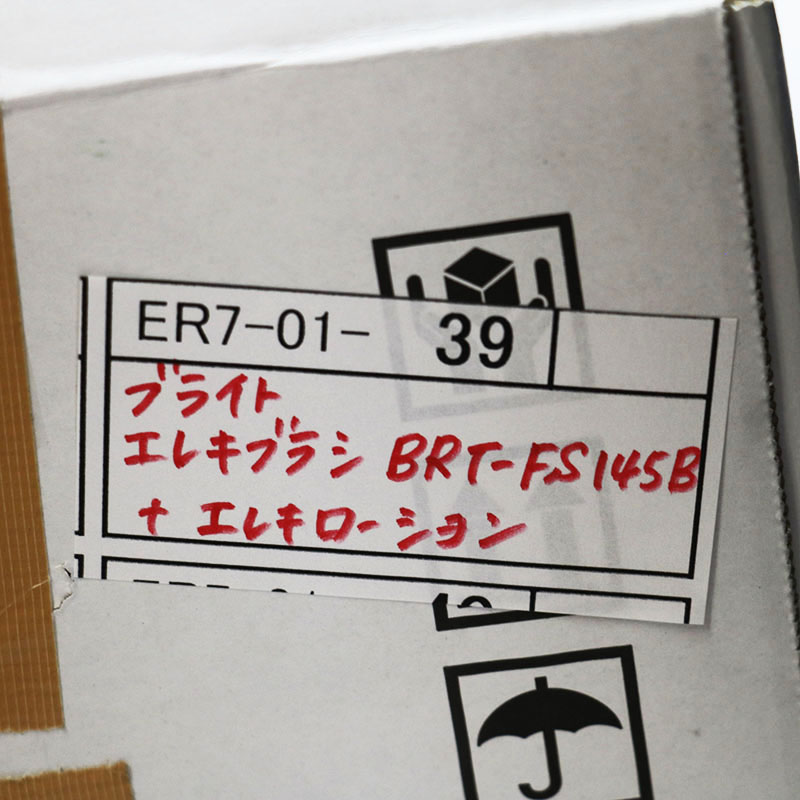 ER7-01- 39
ブライト
エレキブラシ BRT-FS145B
+ エレキローション